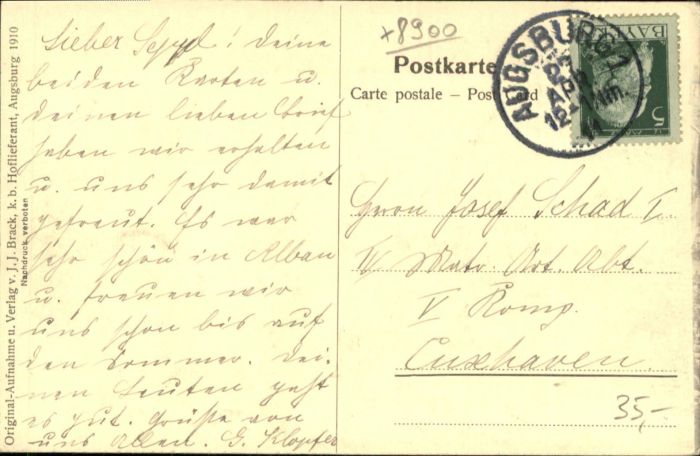 Lieber Seppl! Deine
beiden Karten u.
deinen lieben Brief
haben wir erhalten
u. uns sehr damit
gefreut. Es war
sehr schön in Alban
u. freuen wir
uns schon bis auf
den Sommer. Dei-
nen Leuten geht
es gut. Grüße von
uns Allen. G. Klopfer
Original-Aufnahme u. Verlag v. J. J. Brack, k. b. Hoflieferant, Augsburg 1910
Nachdruck verboten
+8900
Postkarte
Carte postale – Post Card
AUGSBURG 1
APR
12-1 Nm.
11
BAY
5
Herrn Josef Schad I.
IV Matr. Art. Abt.
V Komp.
Cuxhaven.
35,-